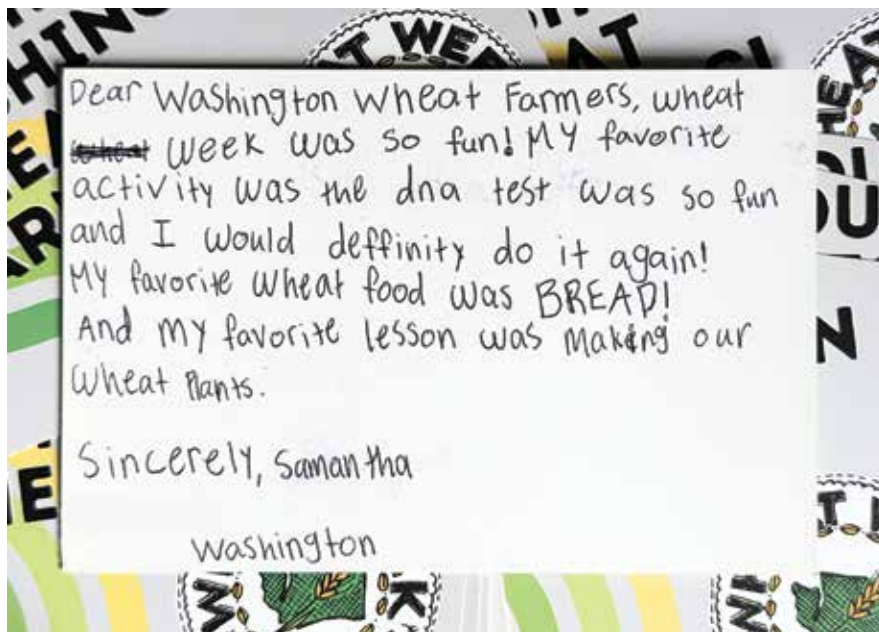 Dear Washington Wheat Farmers, wheat
week was so fun! My favorite
activity was the dna test was so fun
and I would deffinity do it again!
My favorite wheat food was BREAD!
And my favorite lesson was making our
wheat Plants.
Sincerely, Samantha
Washington